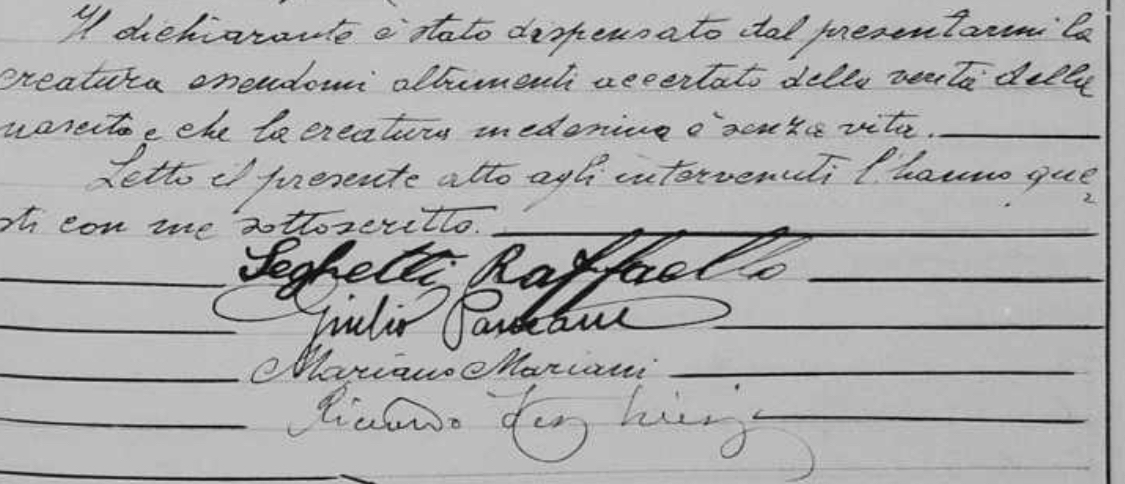 Il dichiarante è stato dispensato dal presentarmi la
creatura essendomi altrimenti accertato della verità della
nascita e che la creatura medesima è senza vita.
Letto il presente atto agli intervenuti l'hanno que
sti con me sottoscritto.
Seghetti Raffaello
Giulio
Mariano Mariani
Riccardo